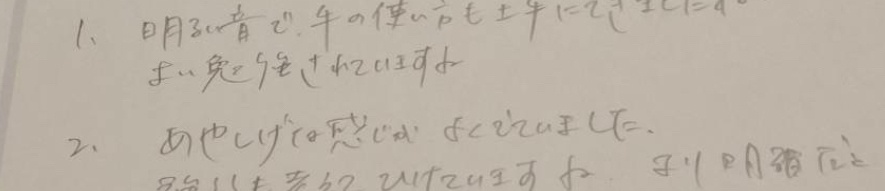 1、明るい音で、手の使い方も上手にできました。
よい勉強されていますね
2、あやしげな感じが よくでていました。
ますね より明確